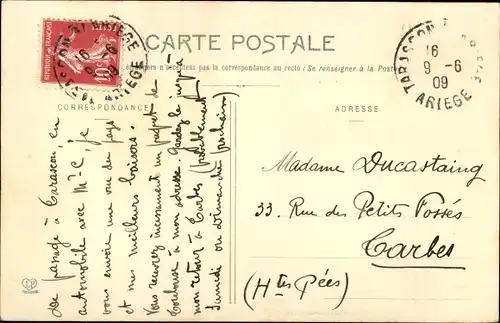 CARTE POSTALE
n'acceptent pas la correspondance au recto (Se renseigner à la Poste)
CORRESPONDANCE
ADRESSE
RÉPUBLIQUE FRANÇAISE
10
ARIEGE
16
9-6
09
TARASCON
ARIEGE
16
9-6
09
De passage à Tarascon, en
automobile avec Mr C, je
vous envoie une vue du pays
et mes meilleurs baisers.
Vous recevrez incessamment un paquet de
Toulouse à mon adresse. Gardez le jusqu'à
mon retour à Tarbes (probablement
Samedi ou dimanche prochain)
Madame Ducastaing
33, Rue des Petits Fossés
Tarbes
(Htes Pées)